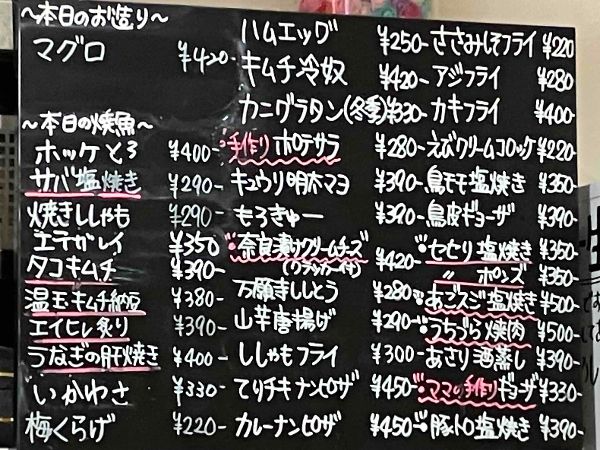 ～本日のお造り～
マグロ ¥420-
～本日の焼魚～
ホッケとろ ¥400-
サバ塩焼き ¥290-
焼きししゃも ¥290-
エテガレイ ¥350
タコキムチ ¥390-
温玉キムチ納豆 ¥380-
エイヒレ炙り ¥390-
うなぎの肝焼き ¥400-
いかわさ ¥330-
梅くらげ ¥220-
ハムエッグ ¥250-
キムチ冷奴 ¥420-
カニグラタン(冬季) ¥330-
手作りポテサラ ¥280-
キュウリ明太マヨ ¥390-
もろきゅー ¥390-
奈良漬けクリームチーズ ¥420-
(クラッカー付き)
万願寺ししとう ¥280-
山芋唐揚げ ¥290-
ししゃもフライ ¥300
てりチキナンピザ ¥450-
カレーナンピザ ¥450-
ささみしそフライ ¥220
アジフライ ¥280
カキフライ ¥400-
えびクリームコロッケ ¥220-
鳥モモ塩焼き ¥350-
鳥皮ギョーザ ¥390-
セセリ塩焼き ¥350-
〃 ポンズ ¥350-
あごスジ塩焼き ¥500-
うちづら焼肉 ¥500-
あさり酒蒸し ¥390-
ママの手作りギョーザ ¥330-
豚トロ塩焼き ¥390-